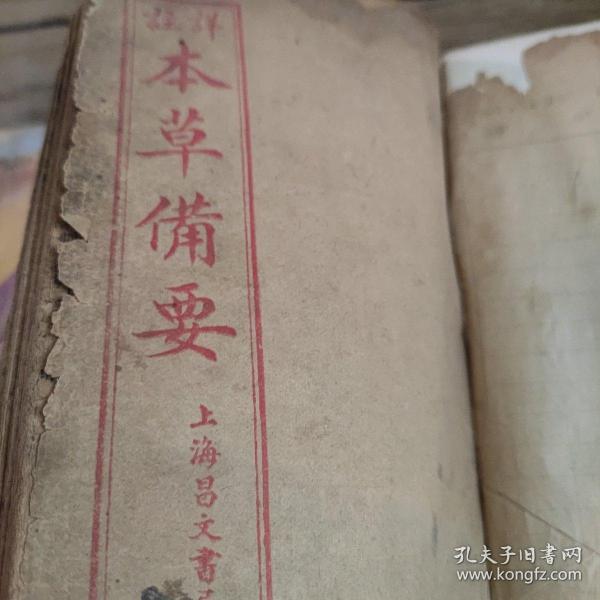 詳註
本草備要
上海昌文書
孔夫子旧书网
www.kongfz.com